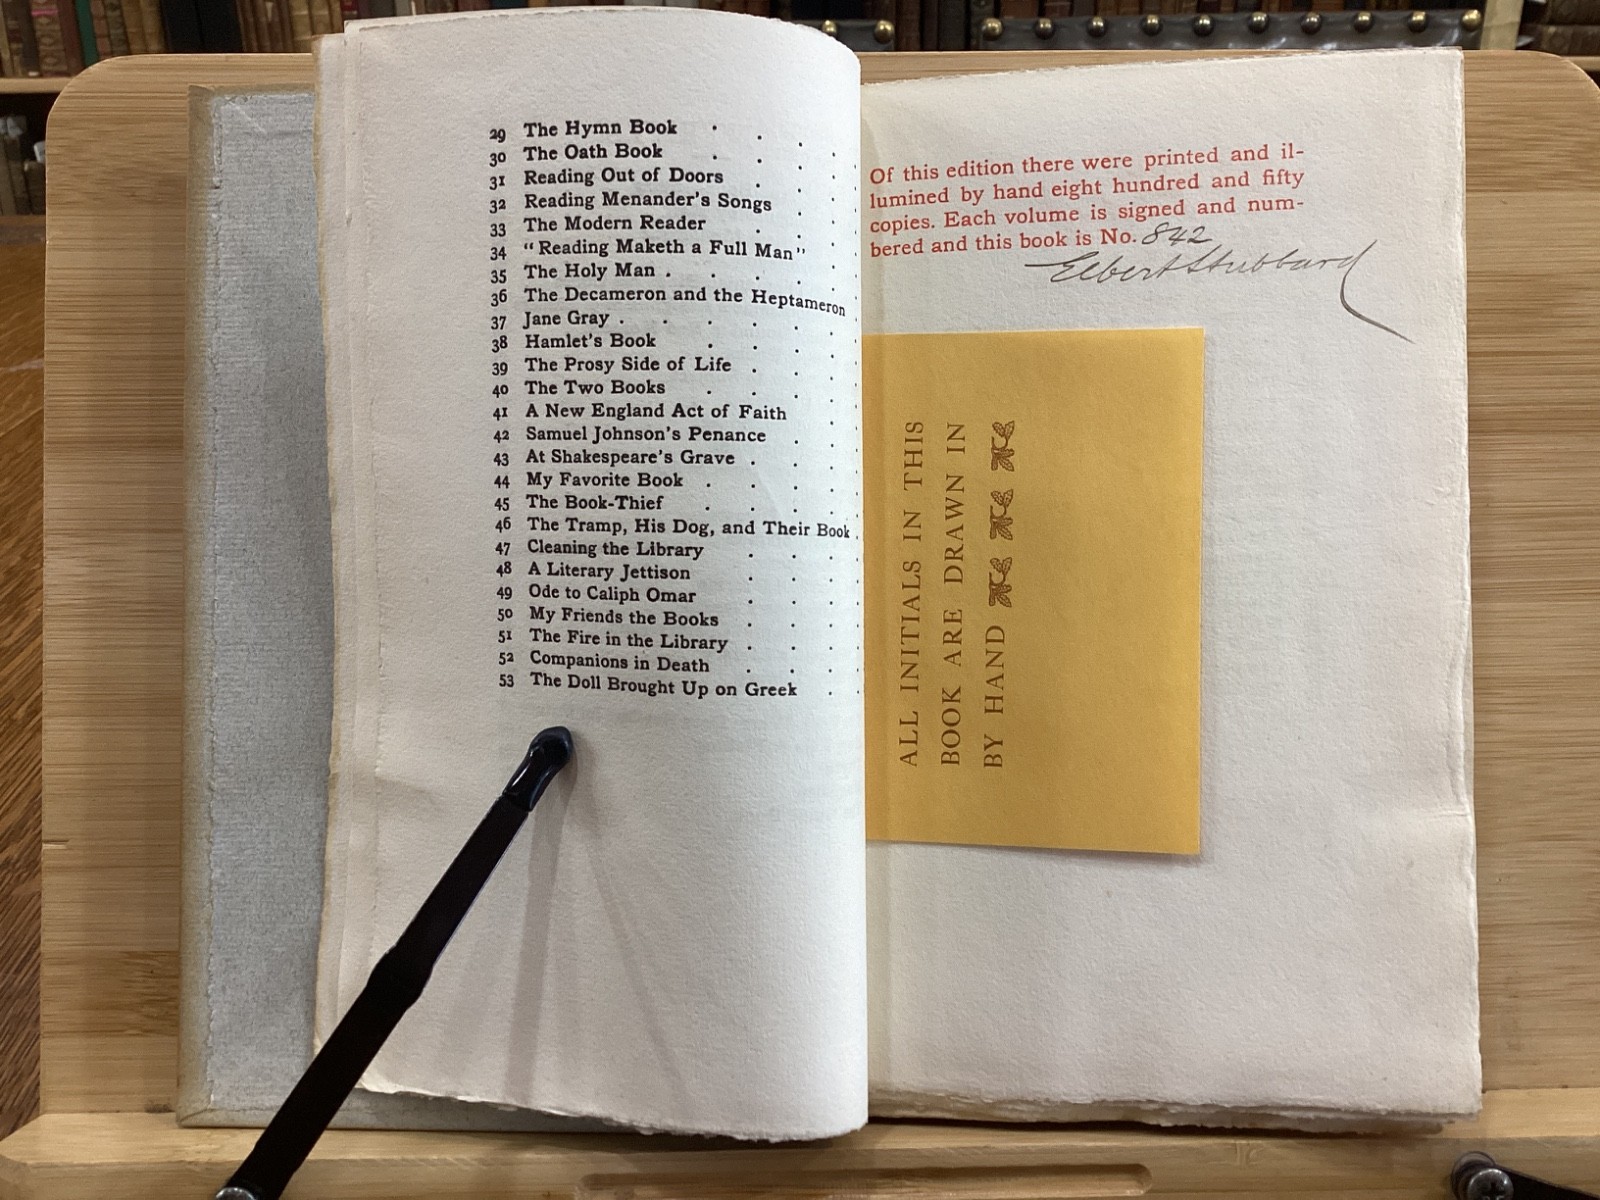 29 The Hymn Book . .
30 The Oath Book . . . .
31 Reading Out of Doors . . .
32 Reading Menander's Songs . .
33 The Modern Reader . . .
34 "Reading Maketh a Full Man" .
35 The Holy Man . . . .
36 The Decameron and the Heptameron
37 Jane Gray . . . . .
38 Hamlet's Book . . . .
39 The Prosy Side of Life . . .
40 The Two Books . . . .
41 A New England Act of Faith . .
42 Samuel Johnson's Penance . . .
43 At Shakespeare's Grave . . .
44 My Favorite Book . . . .
45 The Book-Thief . . . .
46 The Tramp, His Dog, and Their Book .
47 Cleaning the Library . . .
48 A Literary Jettison . . .
49 Ode to Caliph Omar . . .
50 My Friends the Books . . .
51 The Fire in the Library . . .
52 Companions in Death . . .
53 The Doll Brought Up on Greek . .
Of this edition there were printed and il-
lumined by hand eight hundred and fifty
copies. Each volume is signed and num-
bered and this book is No. 842
Elbert Hubbard
ALL INITIALS IN THIS
BOOK ARE DRAWN IN
BY HAND